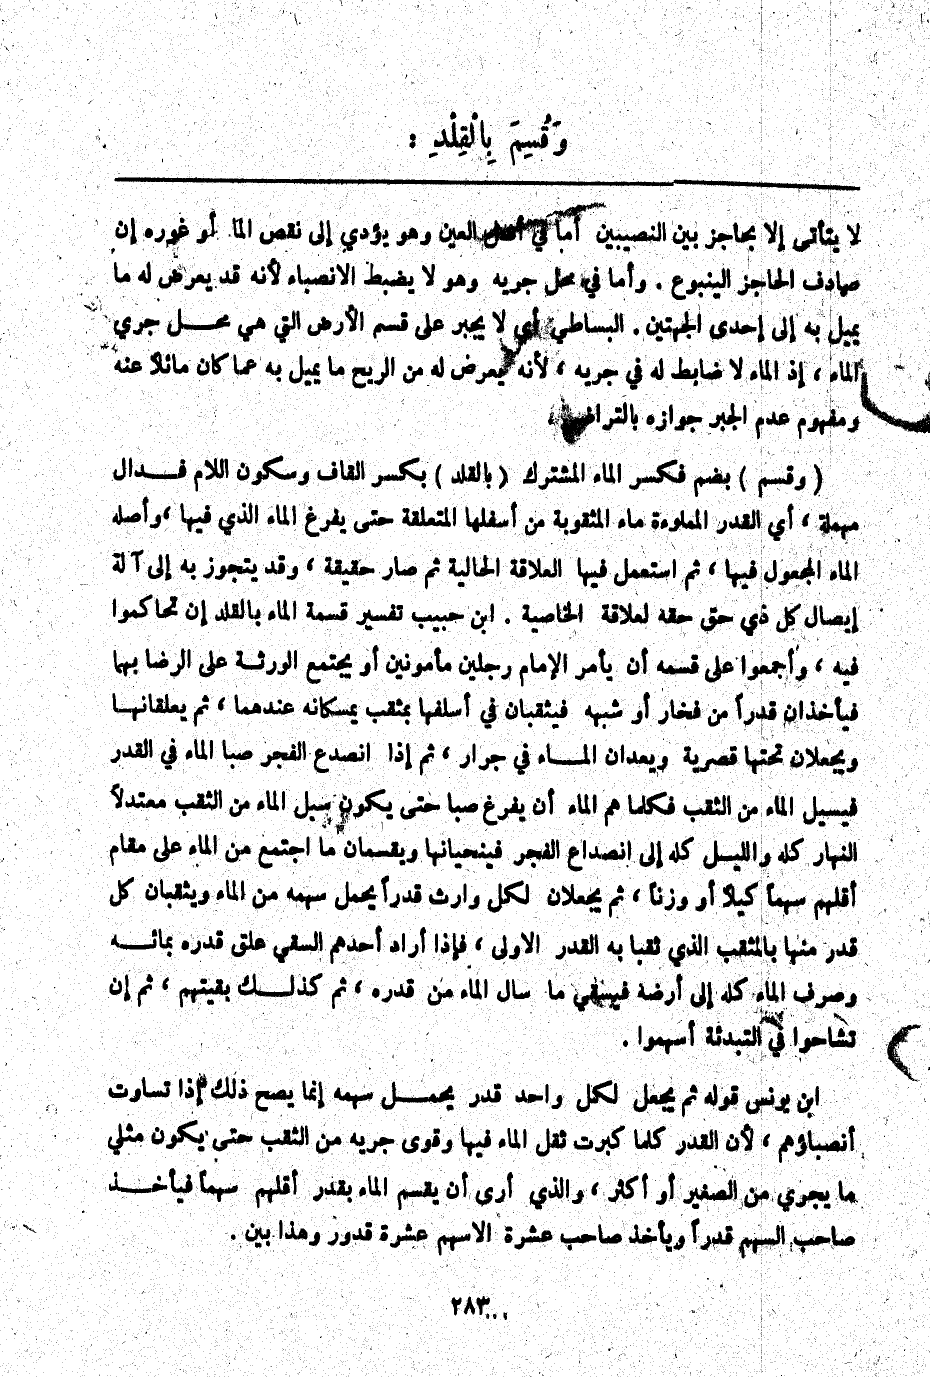 وَقُسِمَ بِالْقِلْدِ :
لا يتأتى إلا بحاجز بين النصيبين أما في أصل العين وهو يؤدي إلى نقص الماء لو غوره إن
صادف الحاجز الينبوع . وأما في محل جريه وهو لا يضبط الانصباء لأنه قد يعرض له ما
يميل به إلى إحدى الجهتين . البساطي أي لا يجبر على قسم الأرض التي هي محـــل جري
الماء ، إذ الماء لا ضابط له في جريه ، لأنه يعرض له من الريح ما يميل به عما كان مائلاً عنه
ومفهوم عدم الجبر جوازه بالتراضي
( وقسم ) بضم فكسر الماء المشترك ( بالقلد ) بكسر القاف وسكون اللام فـــدال
مهملة ، أي القدر المملوءة ماء المثقوبة من أسفلها المتعلقة حتى يفرغ الماء الذي فيها ،وأصله
الماء المجعول فيها ، ثم استعمل فيها العلاقة الحالية ثم صار حقيقة ، وقد يتجوز به إلى آلة
إيصال كل ذي حق حقه لعلاقة الخاصية . ابن حبيب تفسير قسمة الماء بالقلد إن تحاكموا
فيه ، وأجمعوا على قسمه أن يأمر الإمام رجلين مأمونين أو يجتمع الورثـة على الرضا بهما
فيأخذان قدراً من فخار أو شبهه فيثقبان في أسلفها بمثقب يمسكانه عندهما ، ثم يعلقانهـا
ويجعلان تحتها قصرية ويعدان المـــاء في جرار ، ثم إذا انصدع الفجر صبا الماء في القدر
فيسيل الماء من الثقب فكلما هم الماء أن يفرغ صبا حتى يكون سيل الماء من الثقب معتدلاً
النهار كله والليـل كله إلى انصداع الفجر فينحيانها ويقسمان ما اجتمع من الماء على مقام
أقلهم سهماً كيلاً أو وزناً ، ثم يجعلان لكل وارث قدراً يحمل سهمه من الماء ويثقبان كل
قدر منها بالمثقب الذي ثقبا به القدر الاولى ، فإذا أراد أحدهم السقي علق قدره بمائـــه
وصرف الماء كله إلى أرضه فيسقي ما سال الماء من قدره ، ثم كذلـــك بقيتهم ، ثم إن
تشاحوا في التبدئة أسهموا .
ابن يونس قوله ثم يجعل لكل واحد قدر يحمـــل سهمه إنما يصح ذلك إذا تساوت
أنصباؤهم ، لأن القدر كلما كبرت ثقل الماء فيها وقوى جريه من الثقب حتى يكون مثلي
ما يجري من الصغير أو أكثر ، والذي أرى أن يقسم الماء بقدر أقلهم سهماً فيأخـــذ
صاحب السهم قدراً ويأخذ صاحب عشرة الاسهم عشرة قدور وهذا بين .
٢٨٣